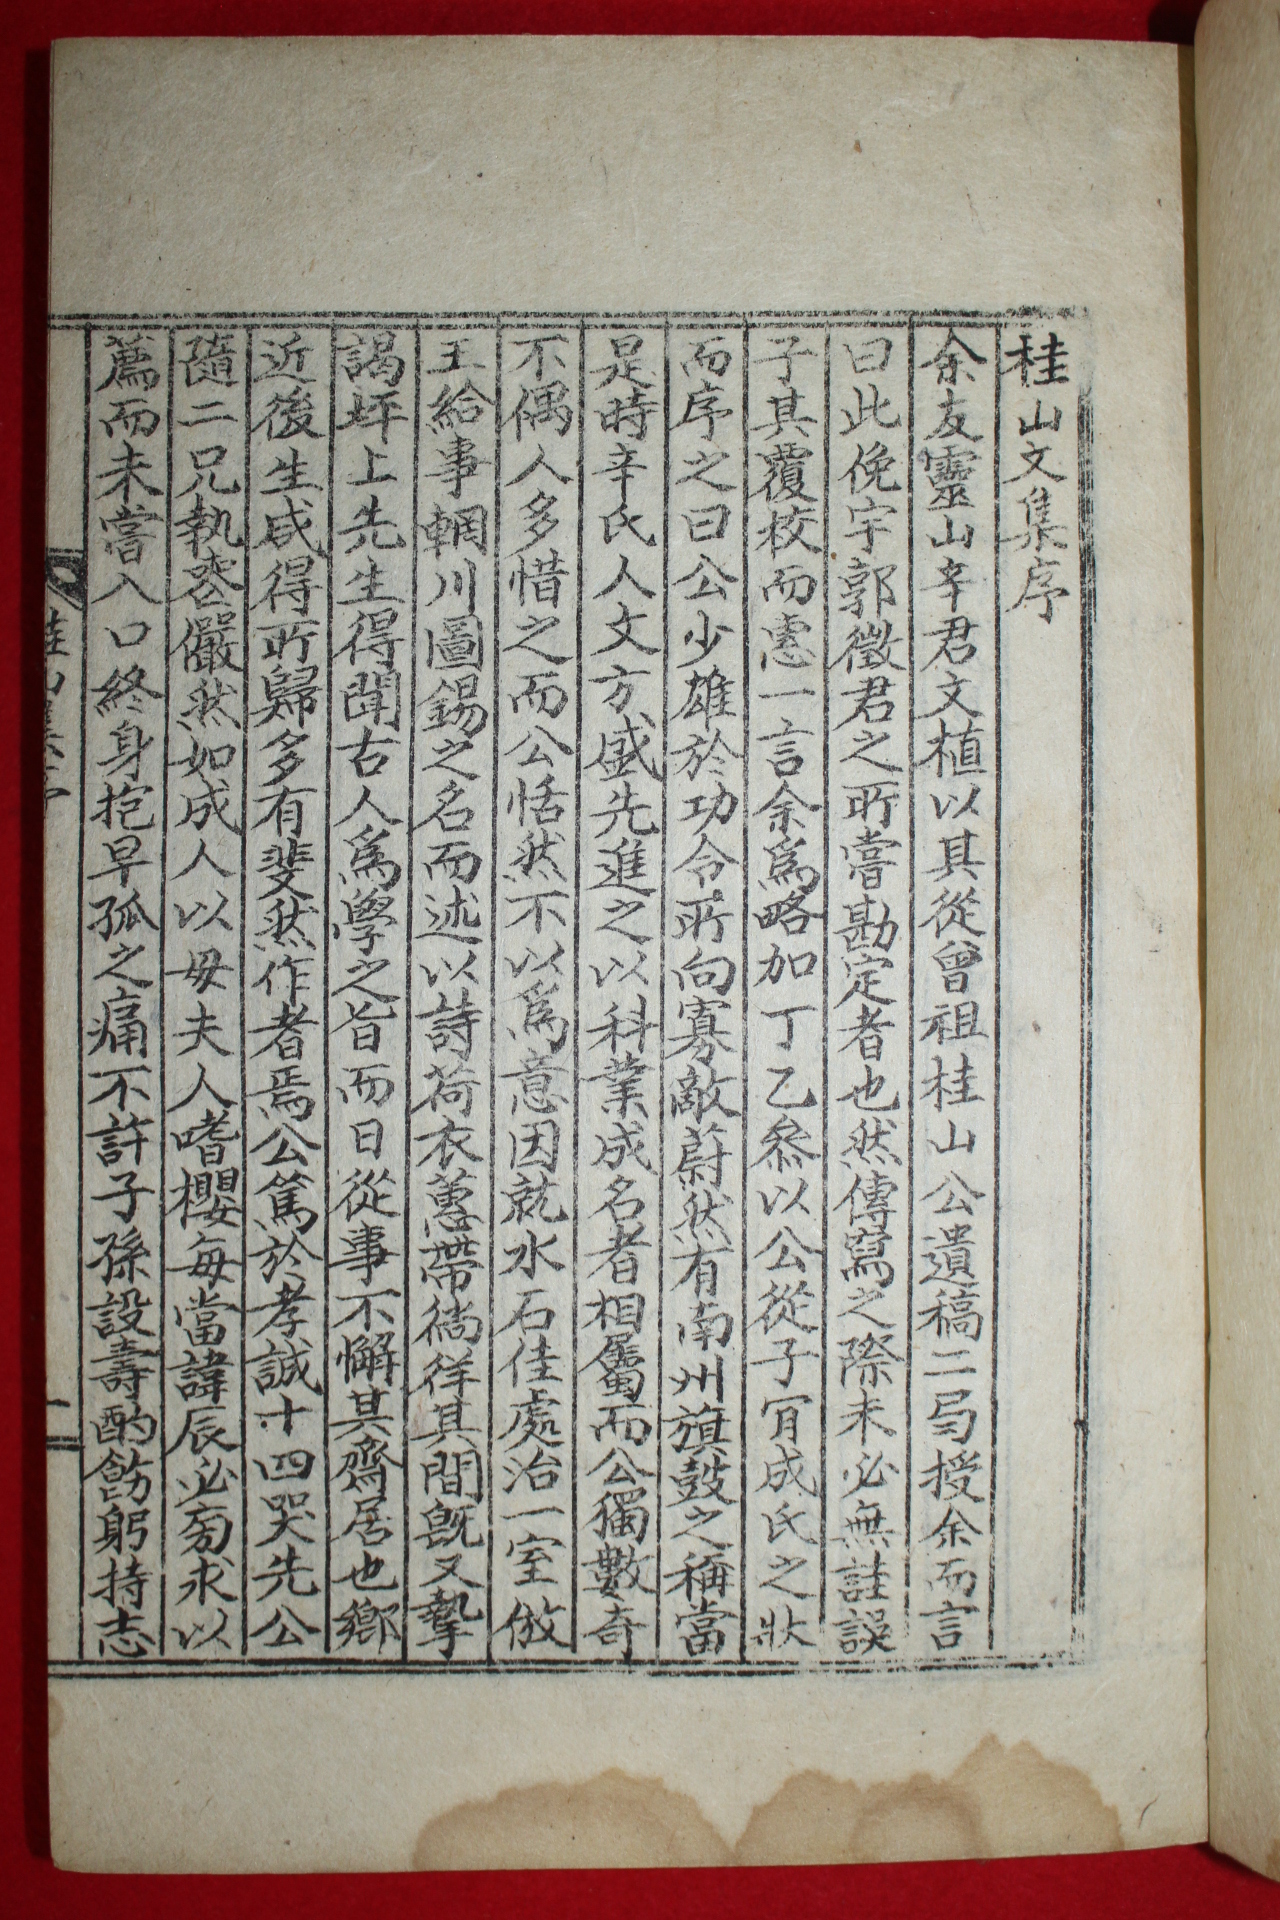 桂山文集序
余友靈山辛君文植以其從曾祖桂山公遺稿二局授余而言
曰此俛宇郭徵君之所嘗勘定者也然傳寫之際未必無註誤
子其覆校而惠一言余爲略加丁乙叅以公從子肎成氏之狀
而序之曰公少雄於功令所向寡敵蔚然有南州旗鼓之稱當
是時辛氏人文方盛先進之以科業成名者相屬而公獨數奇
不偶人多惜之而公恬然不以爲意因就水石佳處治一室倣
王給事輞川圖錫之名而述以詩荷衣蕙帶徜徉其間旣又摯
謁坪上先生得聞古人爲學之旨而日從事不懈其齋居也鄉
近後生咸得所歸多有斐然作者焉公篤於孝誠十四哭先公
隨二兄執喪儼然如成人以母夫人嗜櫻每當諱辰必旁求以
薦而未嘗入口終身抱早孤之痛不許子孫設壽酌飭躬持志
桂山集序
一